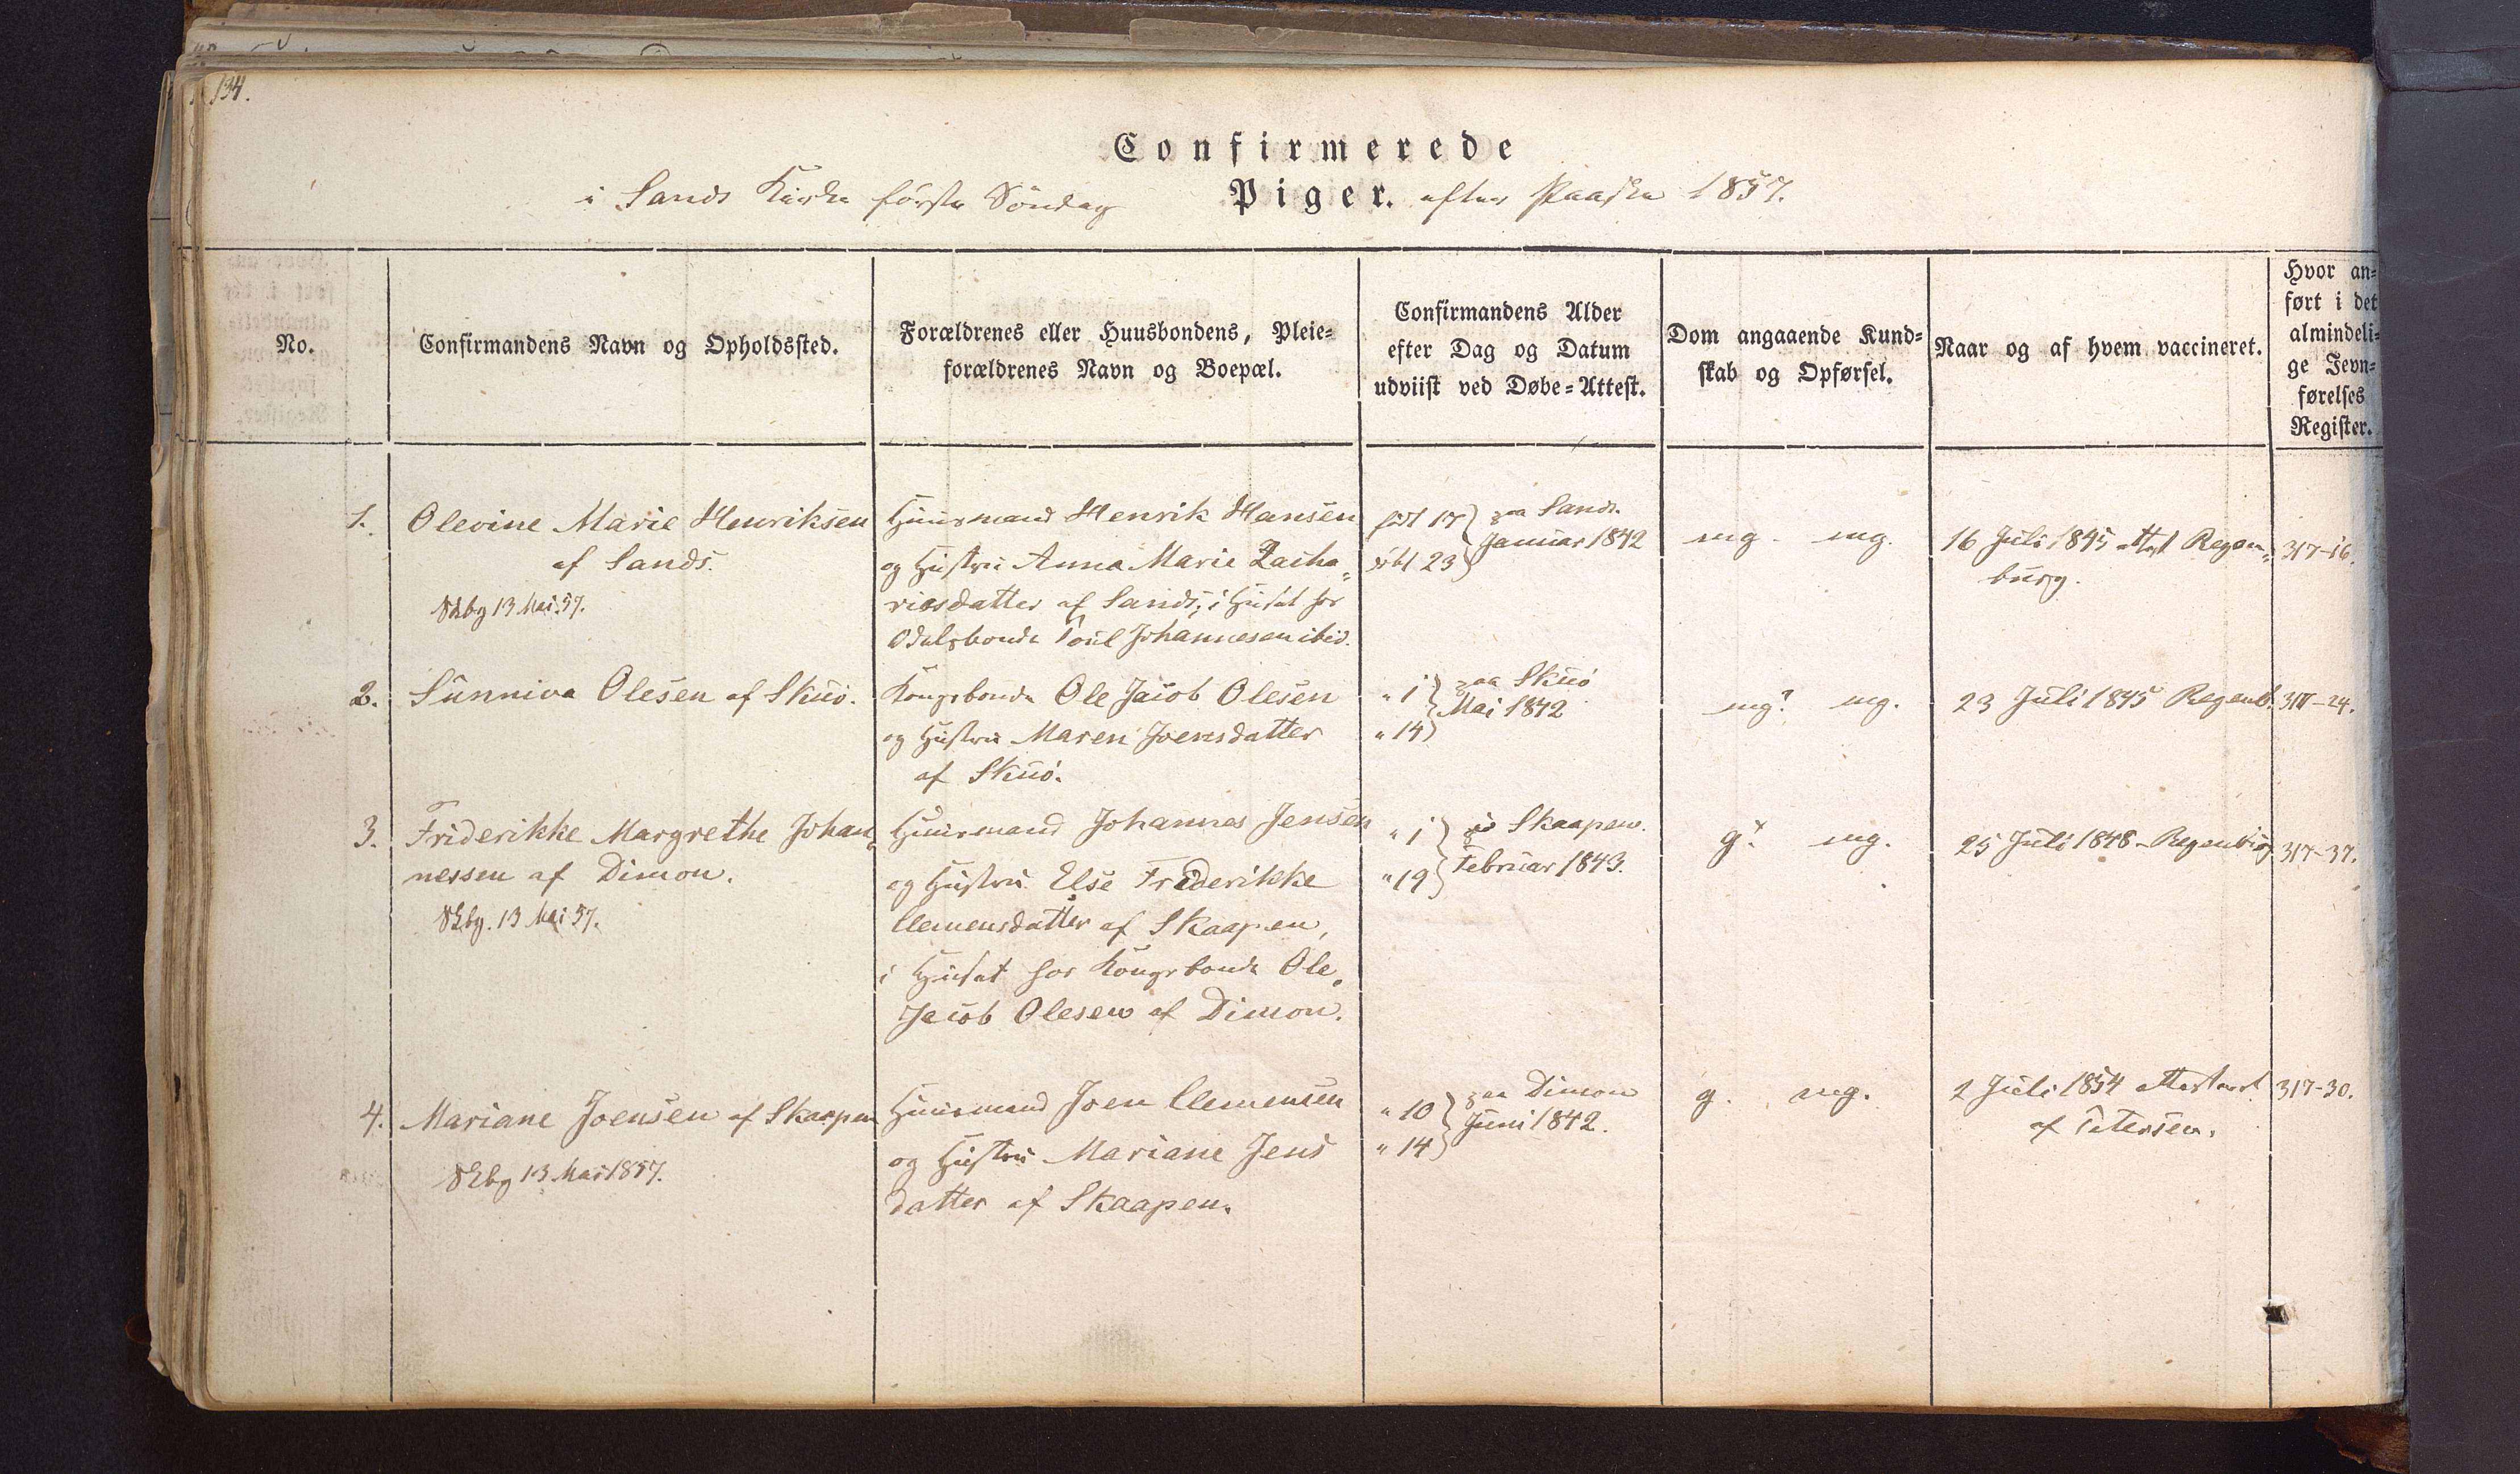 134.
Confirmerede
i Sands Kirke første Söndag Piger. efter Paaske 1857.
No.
Confirmandens Navn og Opholdssted.
Forældrenes eller Huusbondens, Pleie=
forældrenes Navn og Boepæl.
Confirmandens Alder
efter Dag og Datum
udviist ved Døbe=Attest.
Dom angaaende Kund=
skab og Opførsel.
Naar og af hvem vaccineret.
Hvor an=
ført i det
almindeli=
ge Jevn=
førelses
Register.
1.
Olevine Marie Henriksen
af Sands.
13 Mai 57.
Huusmand Henrik Hansen
og Hustru Anna Marie Zacha„
riasdatter af Sands, i Huset hos
Odelsbonde Poul Johannesen ibid.
født 17 paa Sands
döbt 23 Januar 1842
mg. mg.
16 Juli 1845 attest Regen„
burg.
317-16.
2.
Sunniva Olesen af Skuö.
Kongsbonde Ole Jacob Olesen
og Hustru Maren Joensdatter
af Skuö.
" 1 paa Skuö
" 14 Mai 1842
mg? mg.
23 Juli 1845 Regenb.
317-24.
3.
Friderikke Margrethe Johan„
nessen af Dimon.
13 Mai 57.
Huusmand Johannes Jensen
og Hustru Else Friderikke
Clemensdatter af Skaapen,
i Huset hos Kongsbonde Ole„
Jacob Olesen af Dimon.
" 1 i Skaapen.
" 19 Februar 1843.
g? mg.
25 Juli 1848 - Regenburg
317-37.
4.
Mariane Joensen af Skaapen
13 Mai 1857.
Huusmand Joen Clemensen
og Hustru Mariane Jens
datter af Skaapen.
" 10 paa Dimon
" 14 Juni 1842.
g. mg.
2 Juli 1854 attesteret
af Petersen.
317-30.